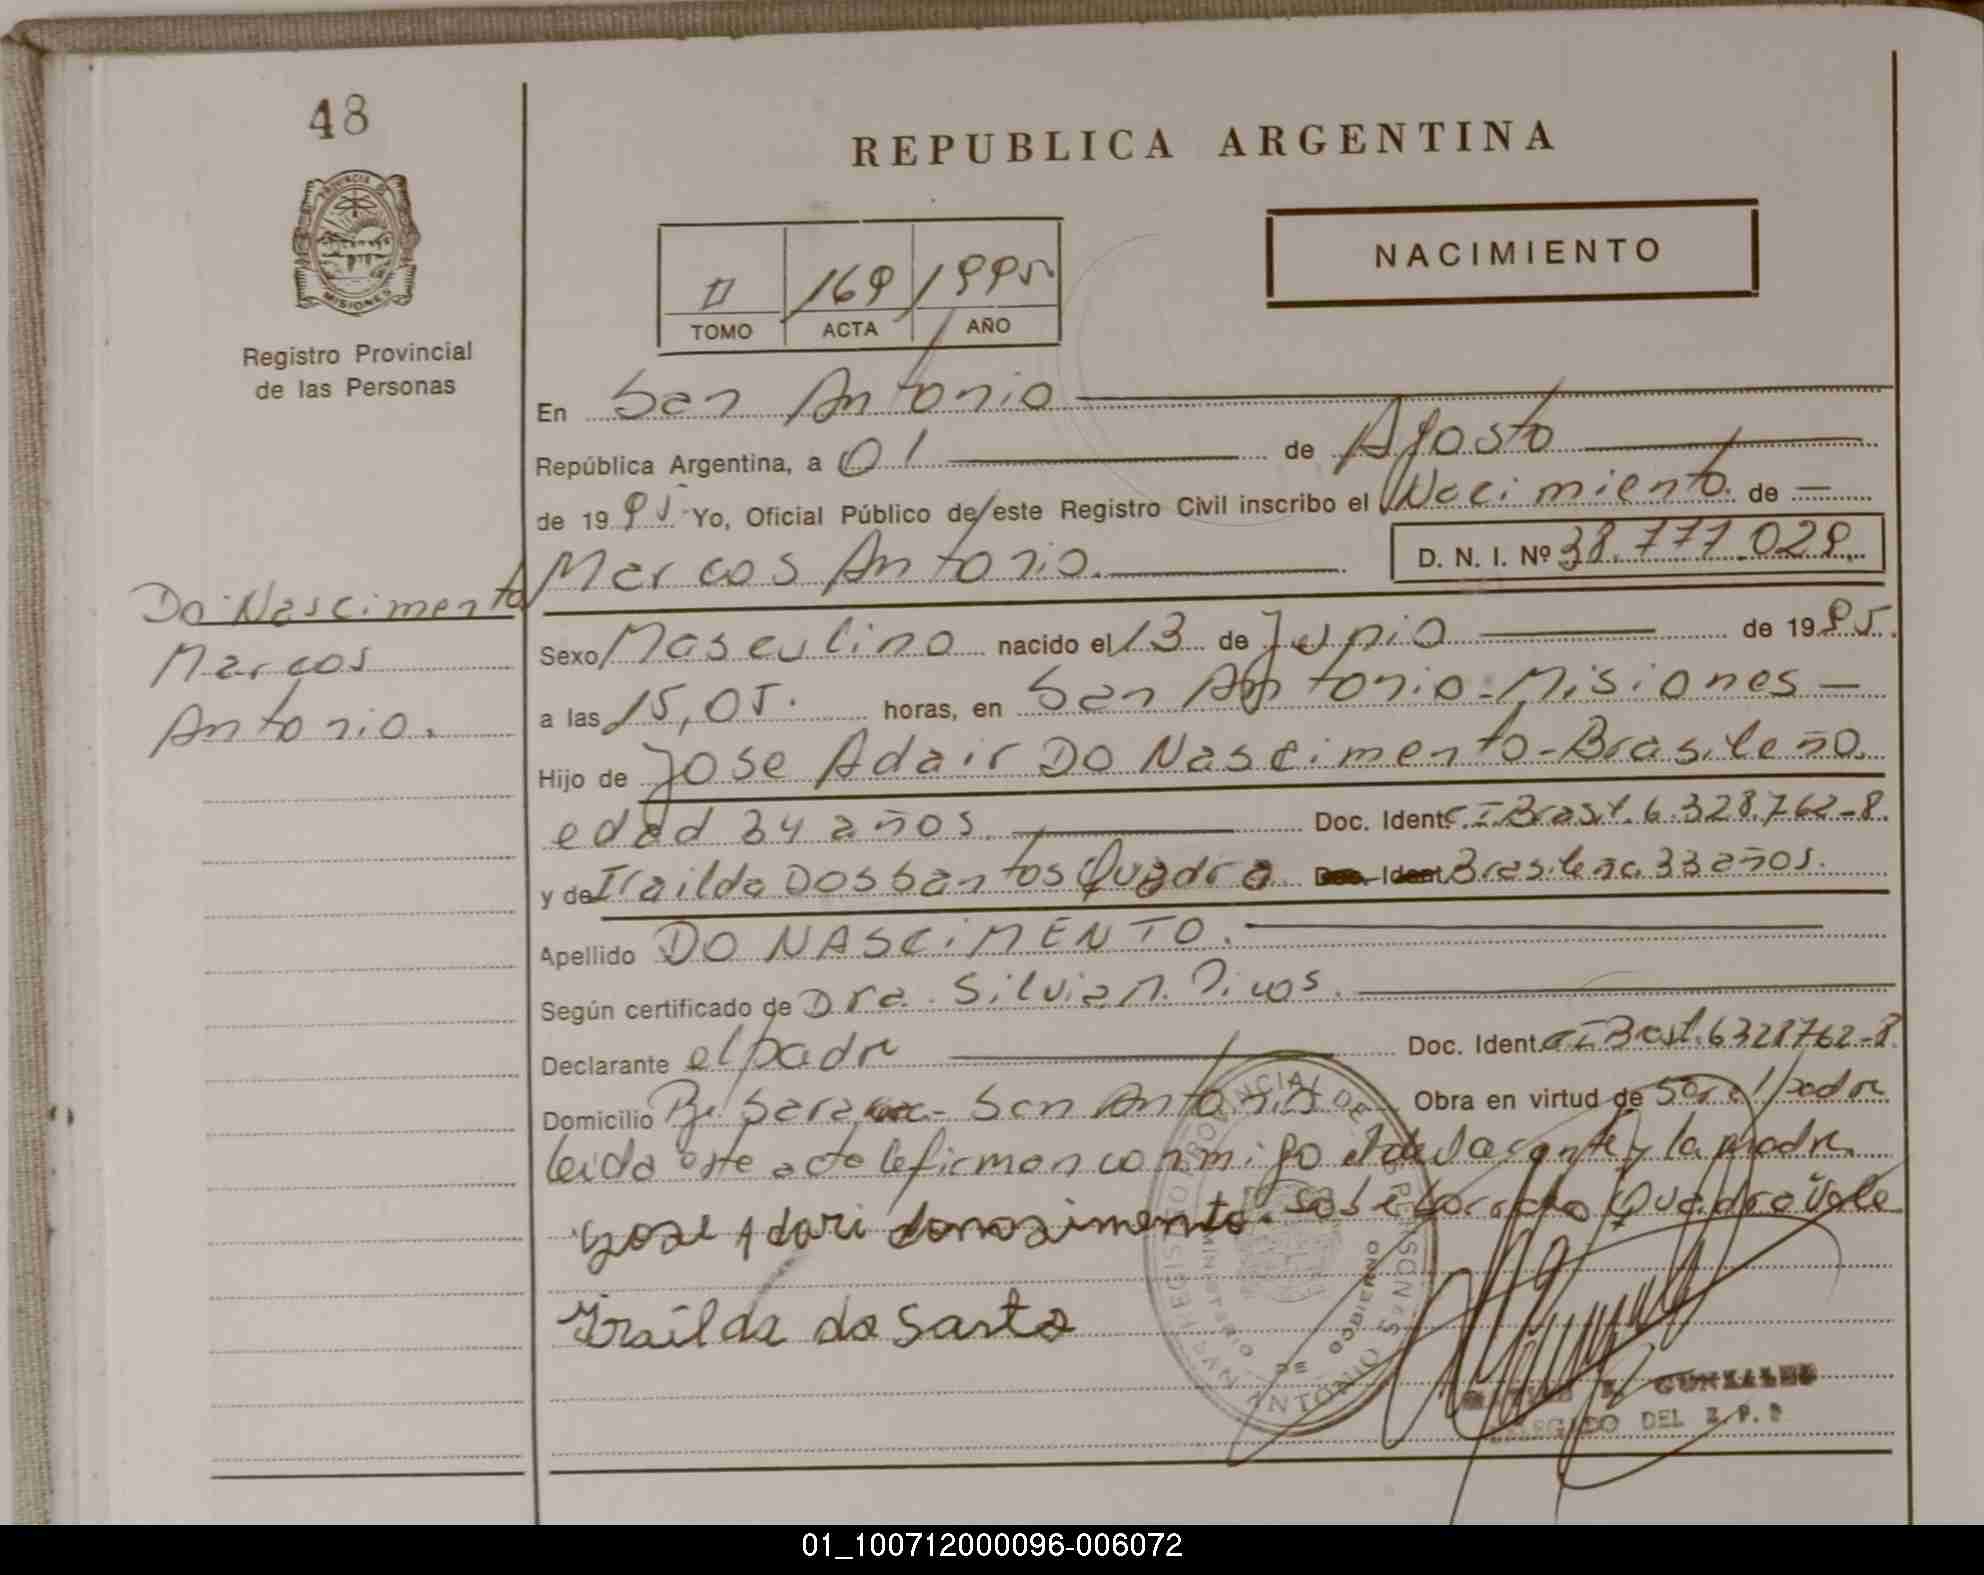 48
REPUBLICA ARGENTINA
PROVINCIA DE
MISIONES
Registro Provincial
de las Personas
NACIMIENTO
II 169 1995
TOMO ACTA AÑO
En San Antonio
República Argentina, a 01 de Agosto
de 1995 Yo, Oficial Público de este Registro Civil inscribo el Nacimiento de —
Marcos Antonio. D. N. I. Nº 38.777.029.
Do Nascimento
Marcos
Antonio.
Sexo Masculino nacido el 13 de Junio de 1995.
a las 15,05. horas, en San Antonio-Misiones —
Hijo de Jose Adair Do Nascimento-Brasileño.
edad 34 años. Doc. Ident. C.I Brasil. 6.328.762-8.
y de Irailda Dos Santos Quadra Doc. Ident. Brasilena 33 años.
Apellido DO NASCIMENTO.
Según certificado de Dra. Silvia M.
Declarante el padre Doc. Ident. C.I Brasil. 6328762-8.
Domicilio San Antonio Obra en virtud de ser el padre
leida este acta le firman conmigo el declarante y la madre
sobre borrado Quadra Vale
Jose Adari donasimento
Irailda do Santo
REGISTRO PROVINCIAL DE LAS PERSONAS
MINISTERIO DE GOBIERNO
SAN ANTONIO
GONZALES
DELEGADO DEL R.P.P
01_100712000096-006072